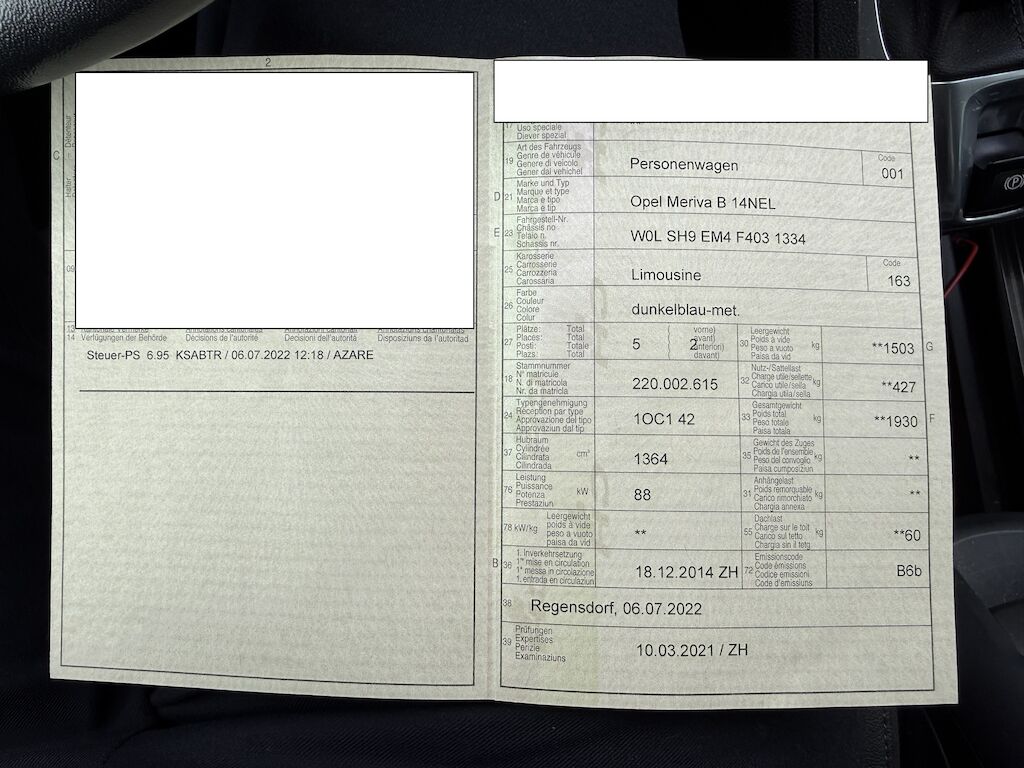 2
C
Détenteur
Halter
09
13
14
Verfügungen der Behörde Décisions de l'autorité Decisioni dell'autorità Disposiziuns da l'autoritad
Steuer-PS 6.95 KSABTR / 06.07.2022 12:18 / AZARE
17
Uso speciale
Diever spezial
19
Art des Fahrzeugs
Genre de véhicule
Genere di veicolo
Gener dal vehichel
Personenwagen
Code
001
D 21
Marke und Typ
Marque et type
Marca e tipo
Marca e tip
Opel Meriva B 14NEL
E 23
Fahrgestell-Nr.
Châssis no
Telaio n.
Schassis nr.
W0L SH9 EM4 F403 1334
25
Karosserie
Carrosserie
Carrozzeria
Carossaria
Limousine
Code
163
26
Farbe
Couleur
Colore
Colur
dunkelblau-met.
27
Plätze: Total
Places: Total
Posti: Totale
Plazs: Total
5
( vorne)
( avant)
( anteriori)
( davant)
2
30
Leergewicht
Poids à vide
Peso a vuoto
Paisa da vid
kg
**1503
G
18
Stammnummer
N° matricule
N. di matricola
Nr. da matricla
220.002.615
32
Nutz-/Sattellast
Charge utile/sellette
Carico utile/sella
Chargia utila/sella
kg
**427
24
Typengenehmigung
Réception par type
Approvazione del tipo
Approvaziun dal tip
1OC1 42
33
Gesamtgewicht
Poids total
Peso totale
Paisa totala
kg
**1930
F
37
Hubraum
Cylindrée
Cilindrata
Cilindrada
cm³
1364
35
Gewicht des Zuges
Poids de l'ensemble
Peso del convoglio
Paisa cumposiziun
kg
**
76
Leistung
Puissance
Potenza
Prestaziun
kW
88
31
Anhängelast
Poids remorquable
Carico rimorchiato
Chargia annexa
kg
**
78 kW/kg
Leergewicht
poids à vide
peso a vuoto
paisa da vid
**
55
Dachlast
Charge sur le toit
Carico sul tetto
Chargia sin il tetg
kg
**60
B 36
1. Inverkehrsetzung
1re mise en circulation
1a messa in circolazione
1. entrada en circulaziun
18.12.2014 ZH
72
Emissionscode
Code émissions
Codice emissioni
Code d'emissiuns
B6b
38
Regensdorf, 06.07.2022
39
Prüfungen
Expertises
Perizie
Examinaziuns
10.03.2021 / ZH